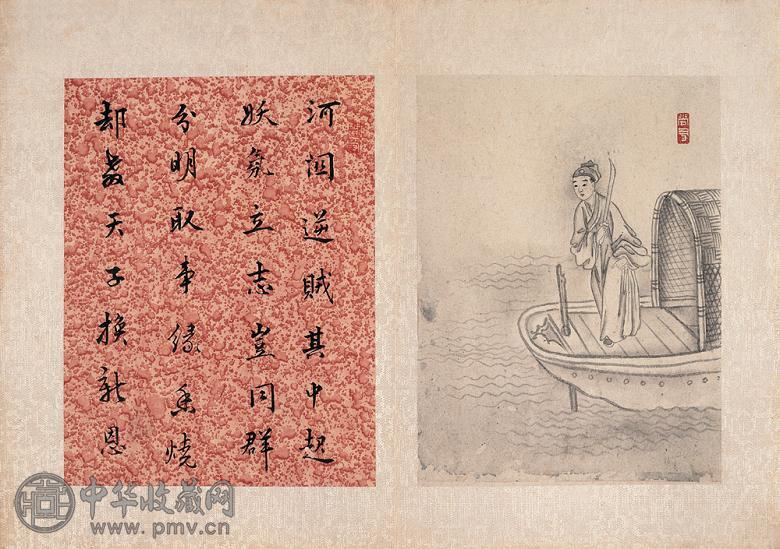 河洄逆賊其中起
妖氛立志豈同群
分明取事緣燒
却教天子換新恩
中华收藏网
www.pmv.cn